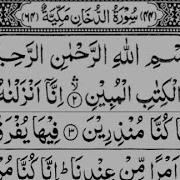 (٤٤) سُوْرَةُ الدُّخَانِ مَكِّيَّةٌ (٦٤)
اللهِ الرَّحْمٰنِ
الْكِتٰبِ الْمُبِيْنِ ۙ﴿٢﴾ اِنَّاۤ اَنْزَلْنٰهُ
كُنَّا مُنْذِرِيْنَ ﴿٣﴾ فِيْهَا
اَمْرًا مِّنْ عِنْدِنَا ؕ اِنَّا كُنَّا